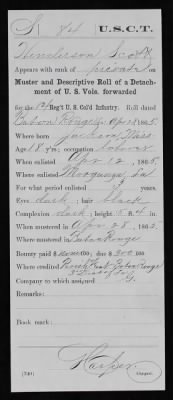 S 84 U.S.C.T.
Henderson Scott
Appears with rank of private on
Muster and Descriptive Roll of a Detach-
ment of U. S. Vols. forwarded
for the Reg't U. S. Col'd Infantry. Roll dated
Baton Rouge La Apr 28, 1865.
Where born Jackson, Miss
Age 18 y'rs; occupation laborer
When enlisted Apr 12, 1865.
Where enlisted La
For what period enlisted 3 years.
Eyes dark; hair black
Complexion dark; height 5 ft. 4 in.
When mustered in Apr 28, 1865.
Where mustered in Baton Rouge
Bounty paid $ none; due $ 300
Where credited Baton Rouge
Company to which assigned
Remarks:
Book mark:
Harper
(340) Copyist.